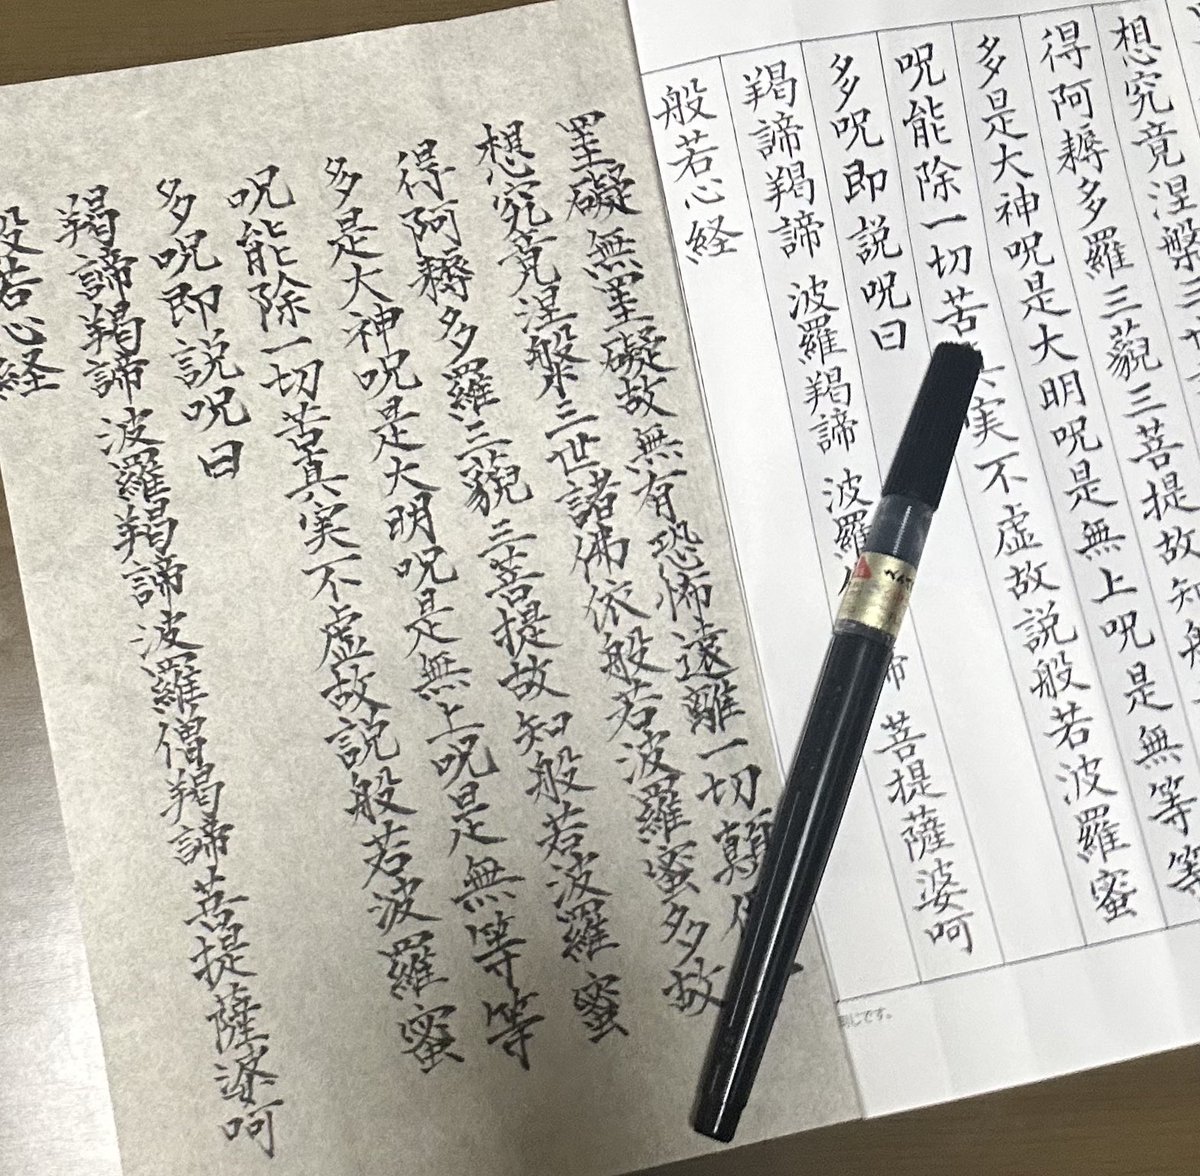 想究竟涅槃三世
得阿耨多羅三藐三菩提故知般
多是大神呪是大明呪是無上呪是無等等
呪能除一切苦実不虚故説般若波羅蜜
多呪即説呪曰
羯諦羯諦 波羅羯諦 波羅諦 菩提薩婆呵
般若心経
じです。
罣礙無罣礙故無有恐怖遠離一切顛
想究竟涅槃三世諸佛依般若波羅蜜多故
得阿耨多羅三藐三菩提故知般若波羅蜜
多是大神呪是大明呪是無上呪是無等等
呪能除一切苦真実不虚故説般若波羅蜜
多呪即説呪曰
羯諦羯諦波羅羯諦波羅僧羯諦菩提薩婆呵
般若心経